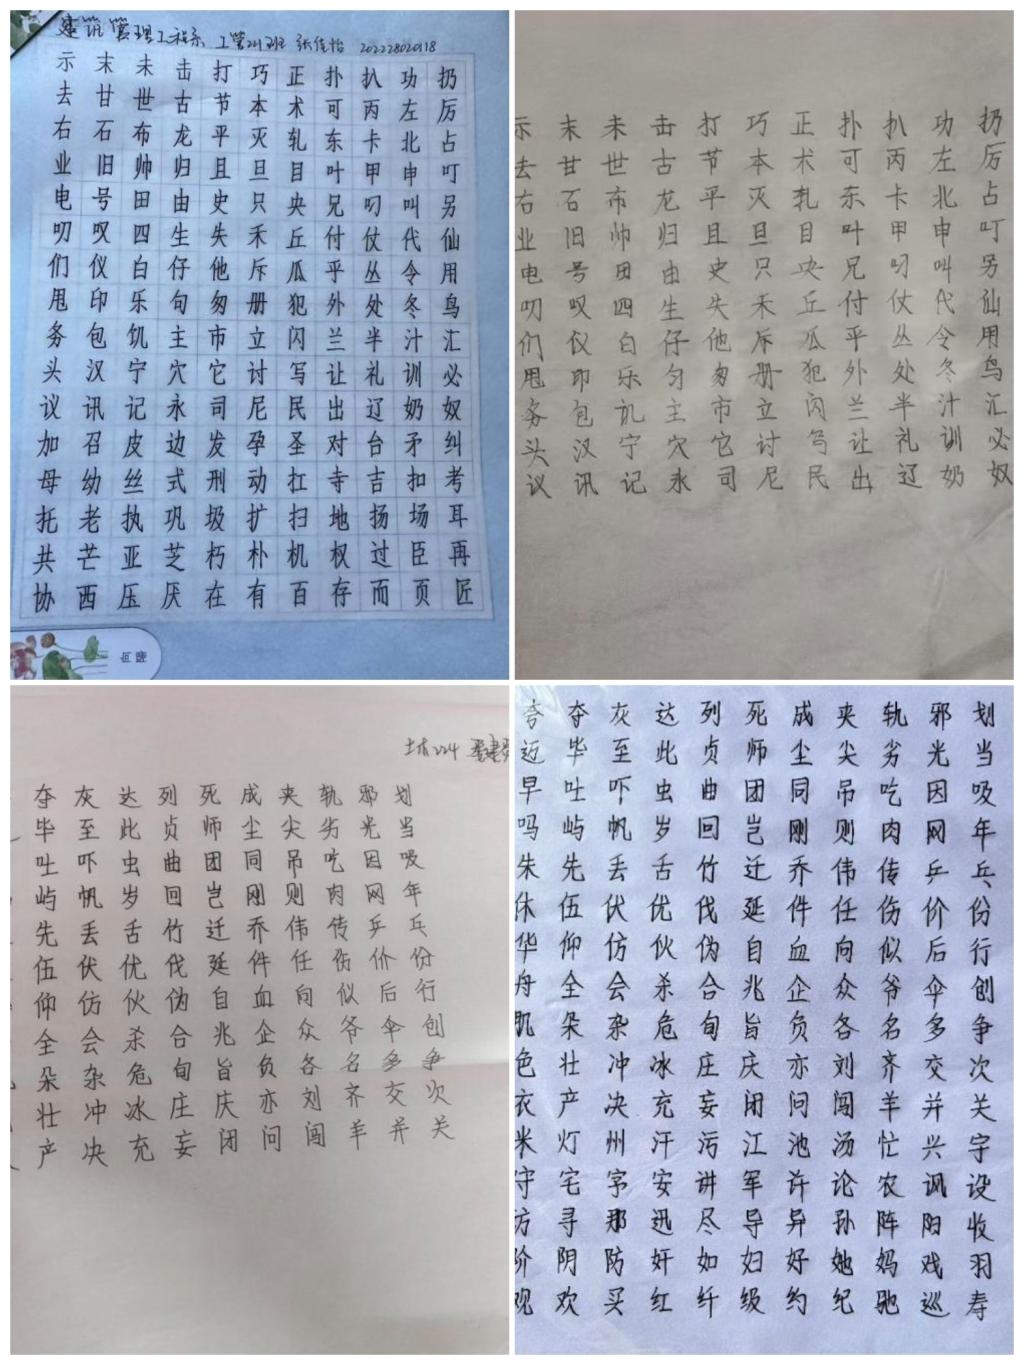 建筑管理工程系 工管221班 张佳怡 202228020118
示末未击打巧正扑扒功扔
去甘世古节本术可丙左厉
右石布龙平灭轧东卡北占
业旧帅归且旦目叶甲申叮
电号田由史只央兄叼叫另
叨叹四生失禾丘付仗代仙
们仪白仔他斥瓜乎丛令用
甩印乐句匆册犯外处冬鸟
务包饥主市立闪兰半汁汇
头汉宁穴它讨写让礼训必
议讯记永司尼民出辽奶奴
加召皮边发孕圣对台矛纠
母幼丝式刑动扛寺吉扣考
托老执巩圾扩扫地扬场耳
共芒亚芝朽朴机权过臣再
协西压厌在有百存而页匠
示末未击打巧正扑扒功扔
去甘世古节本术可丙左厉
右石布龙平灭轧东卡北占
业旧帅归且旦目叶甲申叮
电号田由史只央兄叼叫另
叨叹四生失禾丘付仗代仙
们仪白仔他斥瓜乎丛令用
甩印乐匀匆册犯外处冬鸟
务包饥主市立闪兰半汁汇
头汉宁穴它讨写让礼训必
议讯记永司尼民出辽奶奴
土木224
夺灰达列死成夹轨邪划
毕至此贞师尘尖劣光当
吐吓虫曲团同吊吃因吸
屿帆岁回岂刚则肉网年
先丢舌竹迁乔伟传乒乓
伍伏优伐延件任伤价份
仰仿伙伪自血向似后行
全会杀合兆企众爷伞创
朵杂危旬旨负各名多争
壮冲冰庄庆亦刘齐交次
产决充妄闭问闯羊并关
夸夺灰达列死成夹轨邪划
迈毕至此贞师尘尖劣光当
早吐吓虫曲团同吊吃因吸
吗屿帆岁回岂刚则肉网年
朱先丢舌竹迁乔伟传乒乓
休伍伏优伐延件任伤价份
华仰仿伙伪自血向似后行
舟全会杀合兆企众爷伞创
肌朵杂危旬旨负各名多争
色壮冲冰庄庆亦刘齐交次
衣产决充妄闭问闯羊并关
米灯州汗污江池汤忙兴宇
守宅字安讲军许论农讽设
访寻那迅尽导异孙阵阳收
阶阴防奸如妇好她妈戏羽
观欢买红纤级约纪驰巡寿